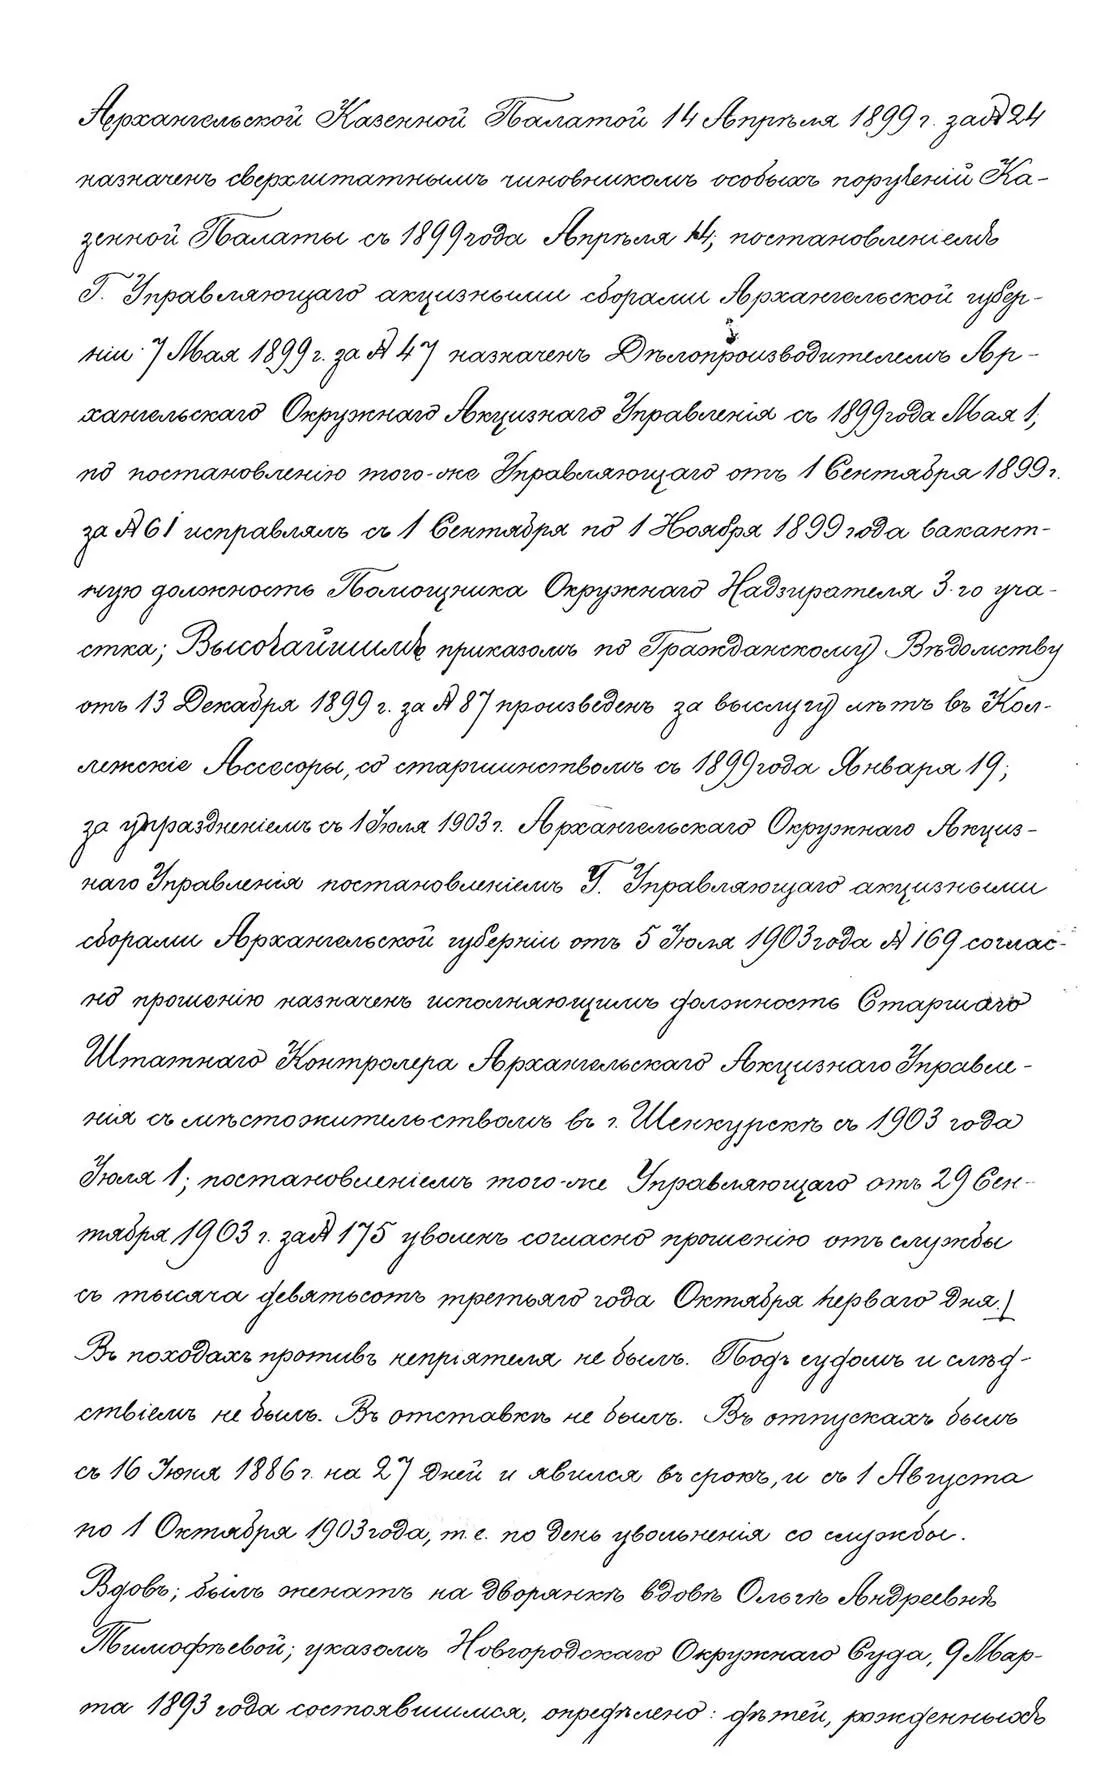 Архангельской Казенной Палатой 14 Апрѣля 1899 г. за № 24
назначенъ сверхштатнымъ чиновникомъ особыхъ порученій Ка-
зенной Палаты съ 1899 года Апрѣля 14; постановленіемъ
Г. Управляющаго акцизными сборами Архангельской губер-
ніи 7 Мая 1899 г. за № 47 назначенъ Дѣлопроизводителемъ Ар-
хангельскаго Окружнаго Акцизнаго Управленія съ 1899 года Мая 1;
по постановленію того-же Управляющаго отъ 1 Сентября 1899 г.
за № 61 исправлялъ съ 1 Сентября по 1 Ноября 1899 года вакант-
ную должность Помощника Окружнаго Надзирателя 3-го уча-
стка; Высочайшимъ приказомъ по Гражданскому Вѣдомству
отъ 13 Декабря 1899 г. за № 87 произведенъ за выслугу лѣтъ въ Кол-
лежскіе Ассесоры, со старшинствомъ съ 1899 года Января 19;
за упраздненіемъ съ 1 Іюля 1903 г. Архангельскаго Окружнаго Акциз-
наго Управленія постановленіемъ Г. Управляющаго акцизными
сборами Архангельской губерніи отъ 5 Іюля 1903 года № 169 соглас-
но прошенію назначенъ исполняющимъ должность Старшаго
Штатнаго Контролера Архангельскаго Акцизнаго Управле-
нія съ мѣстожительствомъ въ г. Шенкурскѣ съ 1903 года
Іюля 1; постановленіемъ того-же Управляющаго отъ 29 Сен-
тября 1903 г. за № 175 уволенъ согласно прошенію отъ службы
съ тысяча девятьсотъ третьяго года Октября перваго дня.
Въ походахъ противъ непріятеля не былъ. Подъ судомъ и слѣд-
ствіемъ не былъ. Въ отставкѣ не былъ. Въ отпускахъ былъ
съ 16 Іюня 1886 г. на 27 дней и явился въ срокъ, и съ 1 Августа
по 1 Октября 1903 года, т.е. по день увольненія со службы.
Вдовъ; былъ женатъ на дворянкѣ вдовѣ Ольгѣ Андреевнѣ
Тимофѣевой; указомъ Новгородскаго Окружнаго Суда, 9 Мар-
та 1893 года состоявшимся, опредѣлено: дѣтей, рожденныхъ